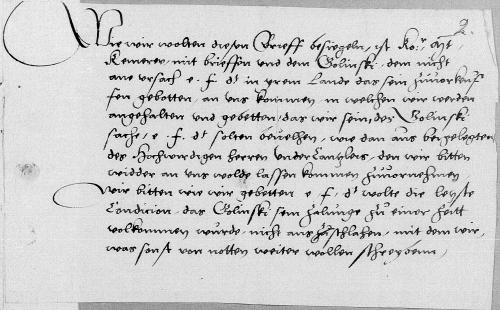 2.
Wie wir wolten diesen Brieff besiegeln, ist Ko: Mt
Kemerer, mit brieffen und dem Golinski, dem nicht
ane ursach e. f. dt in yrem Lande das sein zuvorkeuf
fen gebotten, an uns kommen, in welchen wir werden
angehalten und gebetten, das wir sein, des Golinski
sache, e. f. dt solten bevelhen, wie dan aus beygelegten
des Hochwirdigen herren underCantzlers, den wir bitten
widder an uns wolde lassen kommen zuvornehmen,
wir bitten wie wir gebetten e. f. dt wolte die leyste
Condicion, das Golinski sein zalunge zu einer zeitt
volkommen wurde, nicht ausschlahen, mit dem wir,
was sonst von notten weiter wollen schreyben,